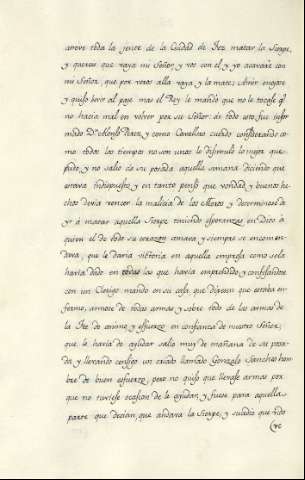 atreve toda la jente de la Ciudad de Fez matar la Sierpe,
y quereis que vaya mi Señor, y vos con el y yo acavaré con
mi Señor, que por veros alla vaya y la mate; Amir enojose
y quiso herir al paje mas el Rey le mandó que no le tocase qe.
no hacia mal en volver por su Señor: de todo esto fue infor
mado Dn. Alonso Perez, y como Cavallero cuerdo considerando co
mo todos los tiempos no son unos le disimuló lo mejor que
pudo, y no salio de su posada aquella semana diciendo que
estava indispuesto y en tanto pensó que verdad y buenos he
chos devia vencer la malicia de los Moros y determinose de
yr á matar aquella Sierpe teniendo esperanzas en Dios á
quien el de todo su corazon amava y siempre se encomen
dava, que le daria victoria en aquella empresa como se la
havia dado en todas las que havia emprehendido y confesandose
con un Clerigo mandó en su casa, que dixesen que estaba en
fermo, armose de todas armas y sobre todo de las armas de
la Fé de animo y esfuerzo en confianza de nuestro Señor,
que le havia de ayudar salio muy de mañana de su posa
da, y llevando consigo un criado llamado Gonzalo Sanchez hom
bre de buen esfuerzo, pero no quiso que llevase armas por
que no tuviese ocasion de le ayudar, y fuese para aquella
parte que decian, que andava la Sierpe, y sucedio que vido